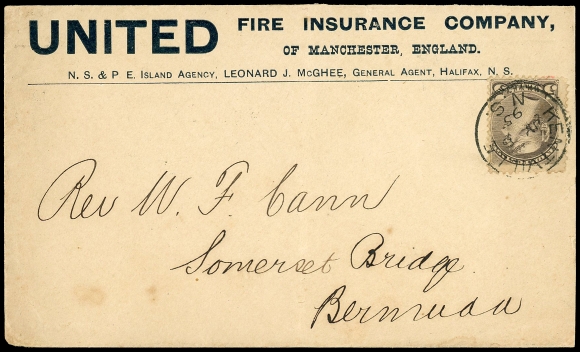 UNITED FIRE INSURANCE COMPANY,
OF MANCHESTER, ENGLAND.
N. S. & P E. ISLAND AGENCY, LEONARD J. MCGHEE, GENERAL AGENT, HALIFAX, N. S.
Rev W. F. Cann
Somerset Bridge
Bermuda